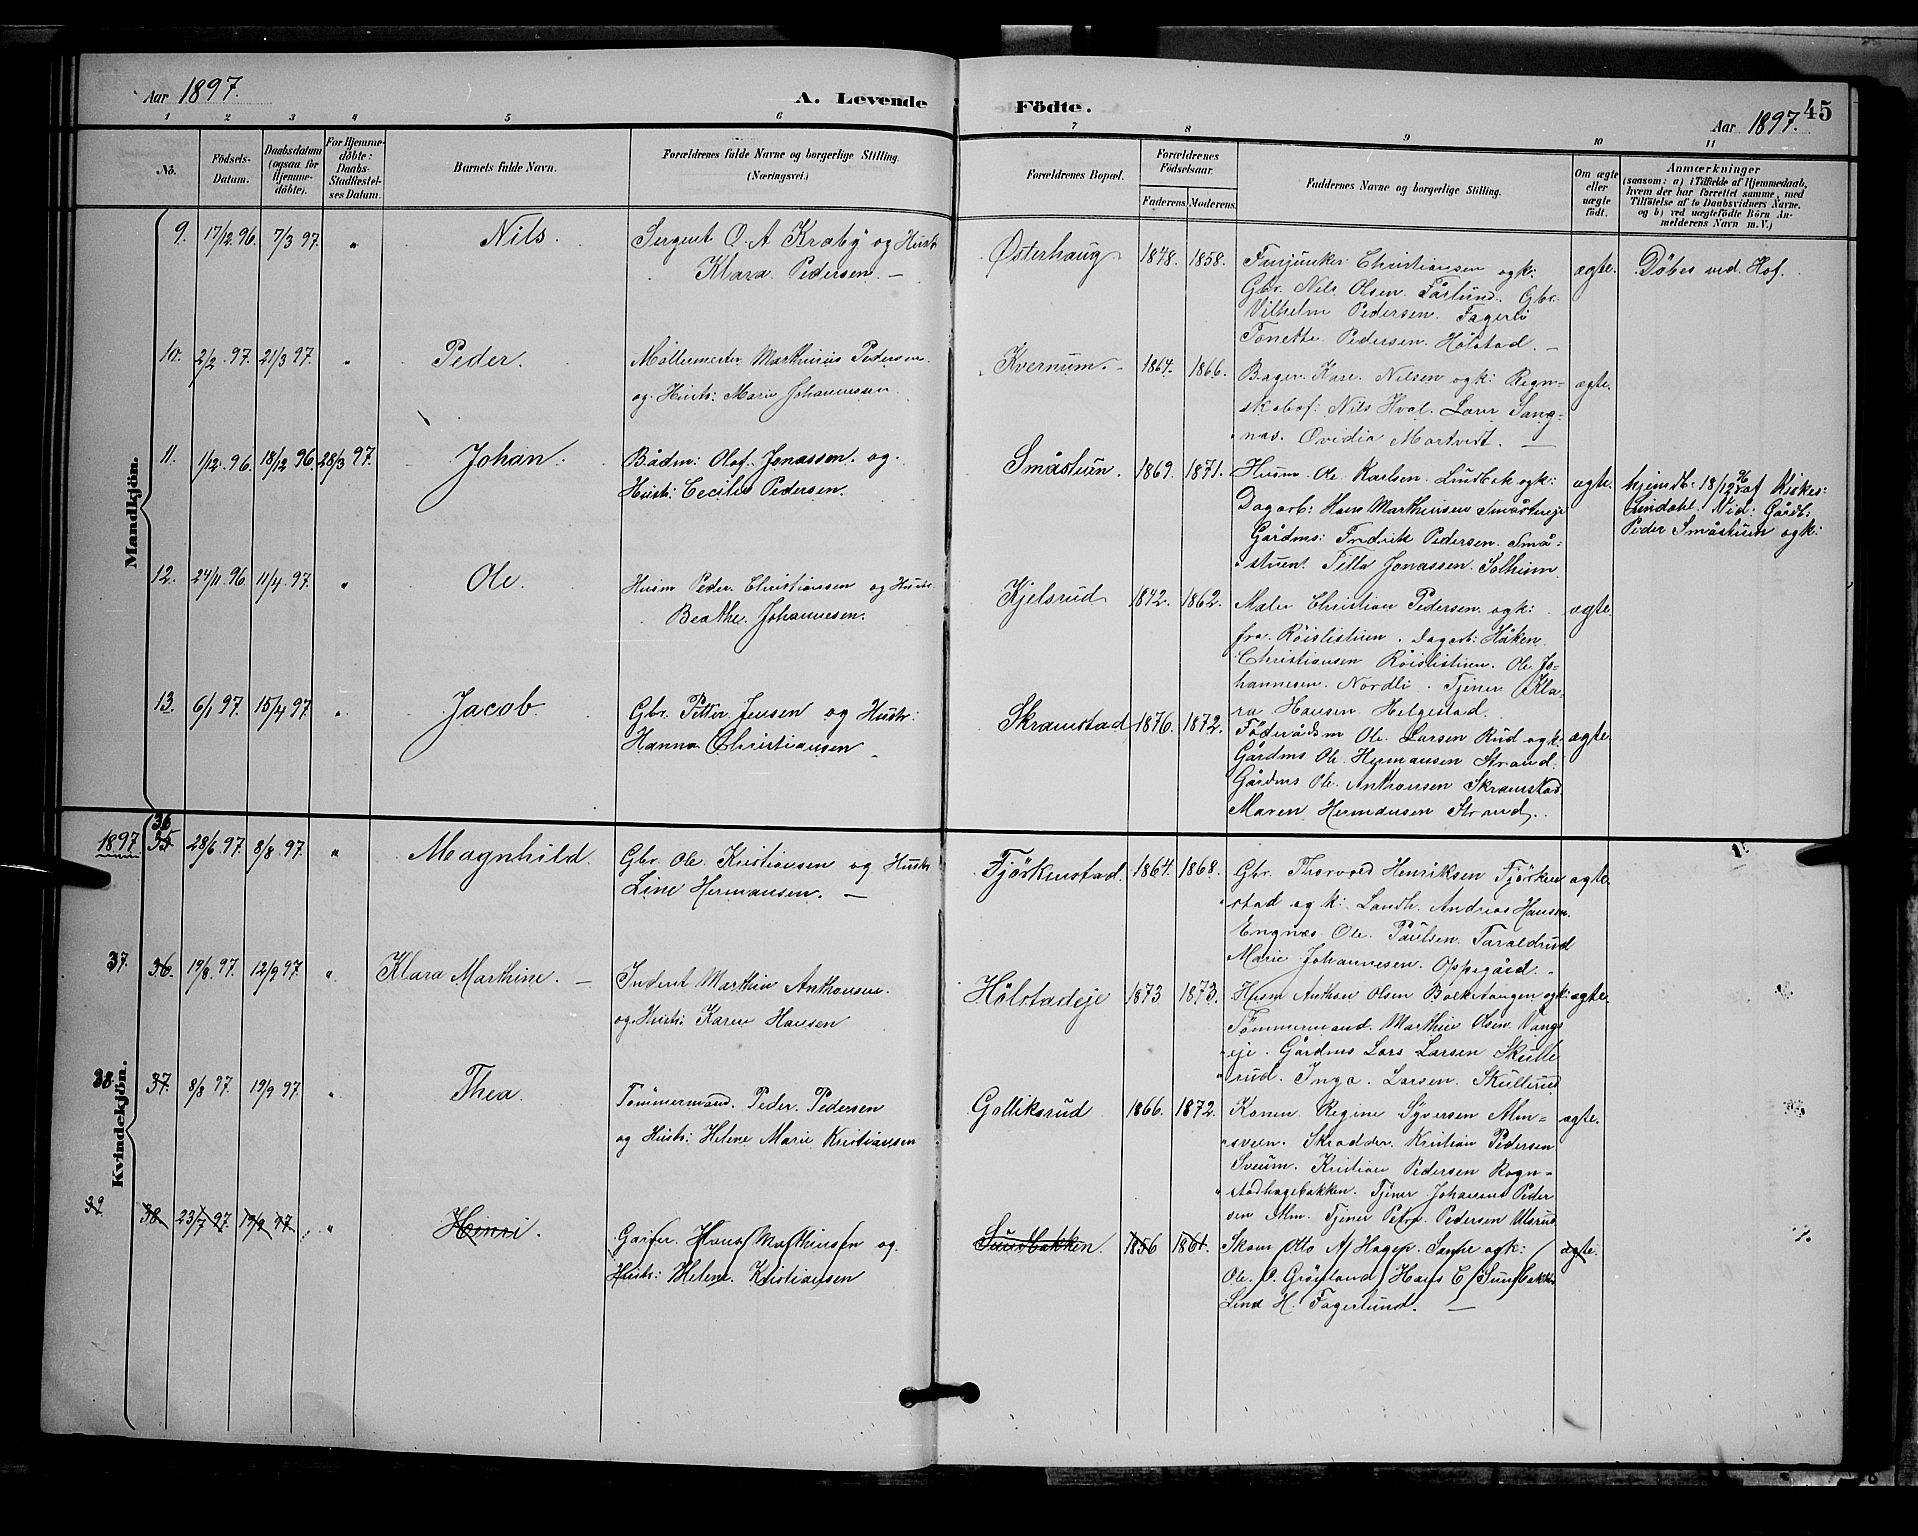 Aar 1897.
A. Levende
Födte.
Aar 1897.
45
1 2 3 4 5 6 7 8 9 10 11
No.
Födsels-Datum.
Daabsdatum (ogsaa for Hjemmedöbte).
For Hjemmedöbte: Daabs-Stadfæstelses Datum.
Barnets fulde Navn.
Forældrenes fulde Navne og borgerlige Stilling. (Næringsvei.)
Forældrenes Bopæl.
Forældrenes Födselsaar.
Faderens. Moderens.
Faddernes Navne og borgerlige Stilling.
Om ægte eller uægte födt.
Anmærkninger
(saasom: a) i Tilfælde af Hjemmedaab,
hvem der har forrettet samme, med
Tilföielse af to Daabsvidners Navne,
og b) ved uægtefödte Börn An-
melderens Navn m. V.)
Mandkjön.
9. 17/12 96. 7/3 97. " Nils. Sergent O. A Kraby og Hustr
Klara Pedersen. —
Østerhaug 1848. 1858.
Christiansen ogk:
Gbr. Nils Olsen Fårlund. Gbr.
Vilhelm Pedersen. Fagerli
Tonette Pedersen. Hölstad. —
ægte. Döbes ved Hof.
10. 2/2 97. 21/3 97. " Peder. Möllemester Marthinius Pedersen.
og Hustr: Marie Johannessen
Kvernum. - 1864. 1866.
Bager Kare Nilsen ogk: Regn-
skabsf: Nils Hval. Lovr Sang-
næs. Ovidia Martvedt. —
ægte.
11. 1/12. 96. 18/12 96. 28/3 97. Johan. Bådm: Olof Jonassen. og
Hustr: Cecilie Pedersen.
Småstuen. 1869. 1871.
Husm Ole Karlsen. Lindbak ogk:
Dagarb: Hans Marthinsen Småstueeje
Gårdms: Fredrik Pedersen. Små-
stuen. Titta Jonassen. Solheim
ægte. hjemdb. 18/12 96 af Kirkes:
Lindahl. Vid: Gårdb:
Peder Småstuen ogk:
12. 24/11 96. 11/4 97. " Ole. Husm Peder Christiansen og Hustr
Beathe. Johannesen.
Kjelsrud 1842. 1862.
Maler Christian Pedersen. ogk:
fra. Röislistuen. Dagarb: Håken
Christiansen Röislistuen. Ole Jo-
hannesen. Nordli. Tjener Kla-
ra Hansen. Helgestad.
ægte.
13. 6/1 97. 15/4 97. " Jacob. Gbr. Petter Jensen og Hustr:
Hanna Christiansen
Skramstad 1876. 1872.
Föderådsm Ole. Larsen Rud ogk:
Gårdms Ole. Hermansen Strand.
Gårdms Ole Anthonsen Skramstad
Maren Hermansen Strand.
ægte.
Kvindekjön.
1897. 36 35 28/6 97. 8/8 97. " Magnhild. Gbr. Ole Kristiansen og Hustr
Line Hermansen. —
Fjörkenstad. 1864. 1868.
Gbr. Thorvald Henriksen Fjörken
stad ogk: Landh. Andreas Hansen.
Engnæs Ole. Paulsen. Taraldrud
Marie Johannesen. Oppegård. -
ægte.
37. 36. 19/8. 97. 12/9 97. " Klara Marthine. — Inderst Marthin Anthonsen.
og Hustr: Karen Hansen
Hölstadeje 1873 1873.
Husm Anthon Olsen Bolkestangen ogk:
Tömmermand. Marthin Olsen Vangs
eje. Gårdms Lars Larsen Skulle
rud. Inga. Larsen. Skullerud
ægte.
38. 37. 8/8 97. 19/9 97. " Thea. Tömmermand. Peder. Pedersen
og Hustr: Helene Marie Kristiansen
Golliksrud 1866. 1872.
Konen Regine Syversen Alm-
sveen. Skrædder. Kristian Pedersen
Sveum. Kristian Pedersen Rogn-
stadhagebakken. Tjener Johannes Peder
sen Alm. Tjener Petra Pedersen Ulsrud
ægte.
39 38. 23/7 97. 19/9 97. " Henri. Garfer. Hans Mathinsen og
Hustr: Helene. Kristiansen
Sundbakken. 1856 1861.
Skom Otto A Hagep. ogk:
Ole. O. Grönland Hans C Sundbakken
Lina H. Fagerlund. —
ægte.